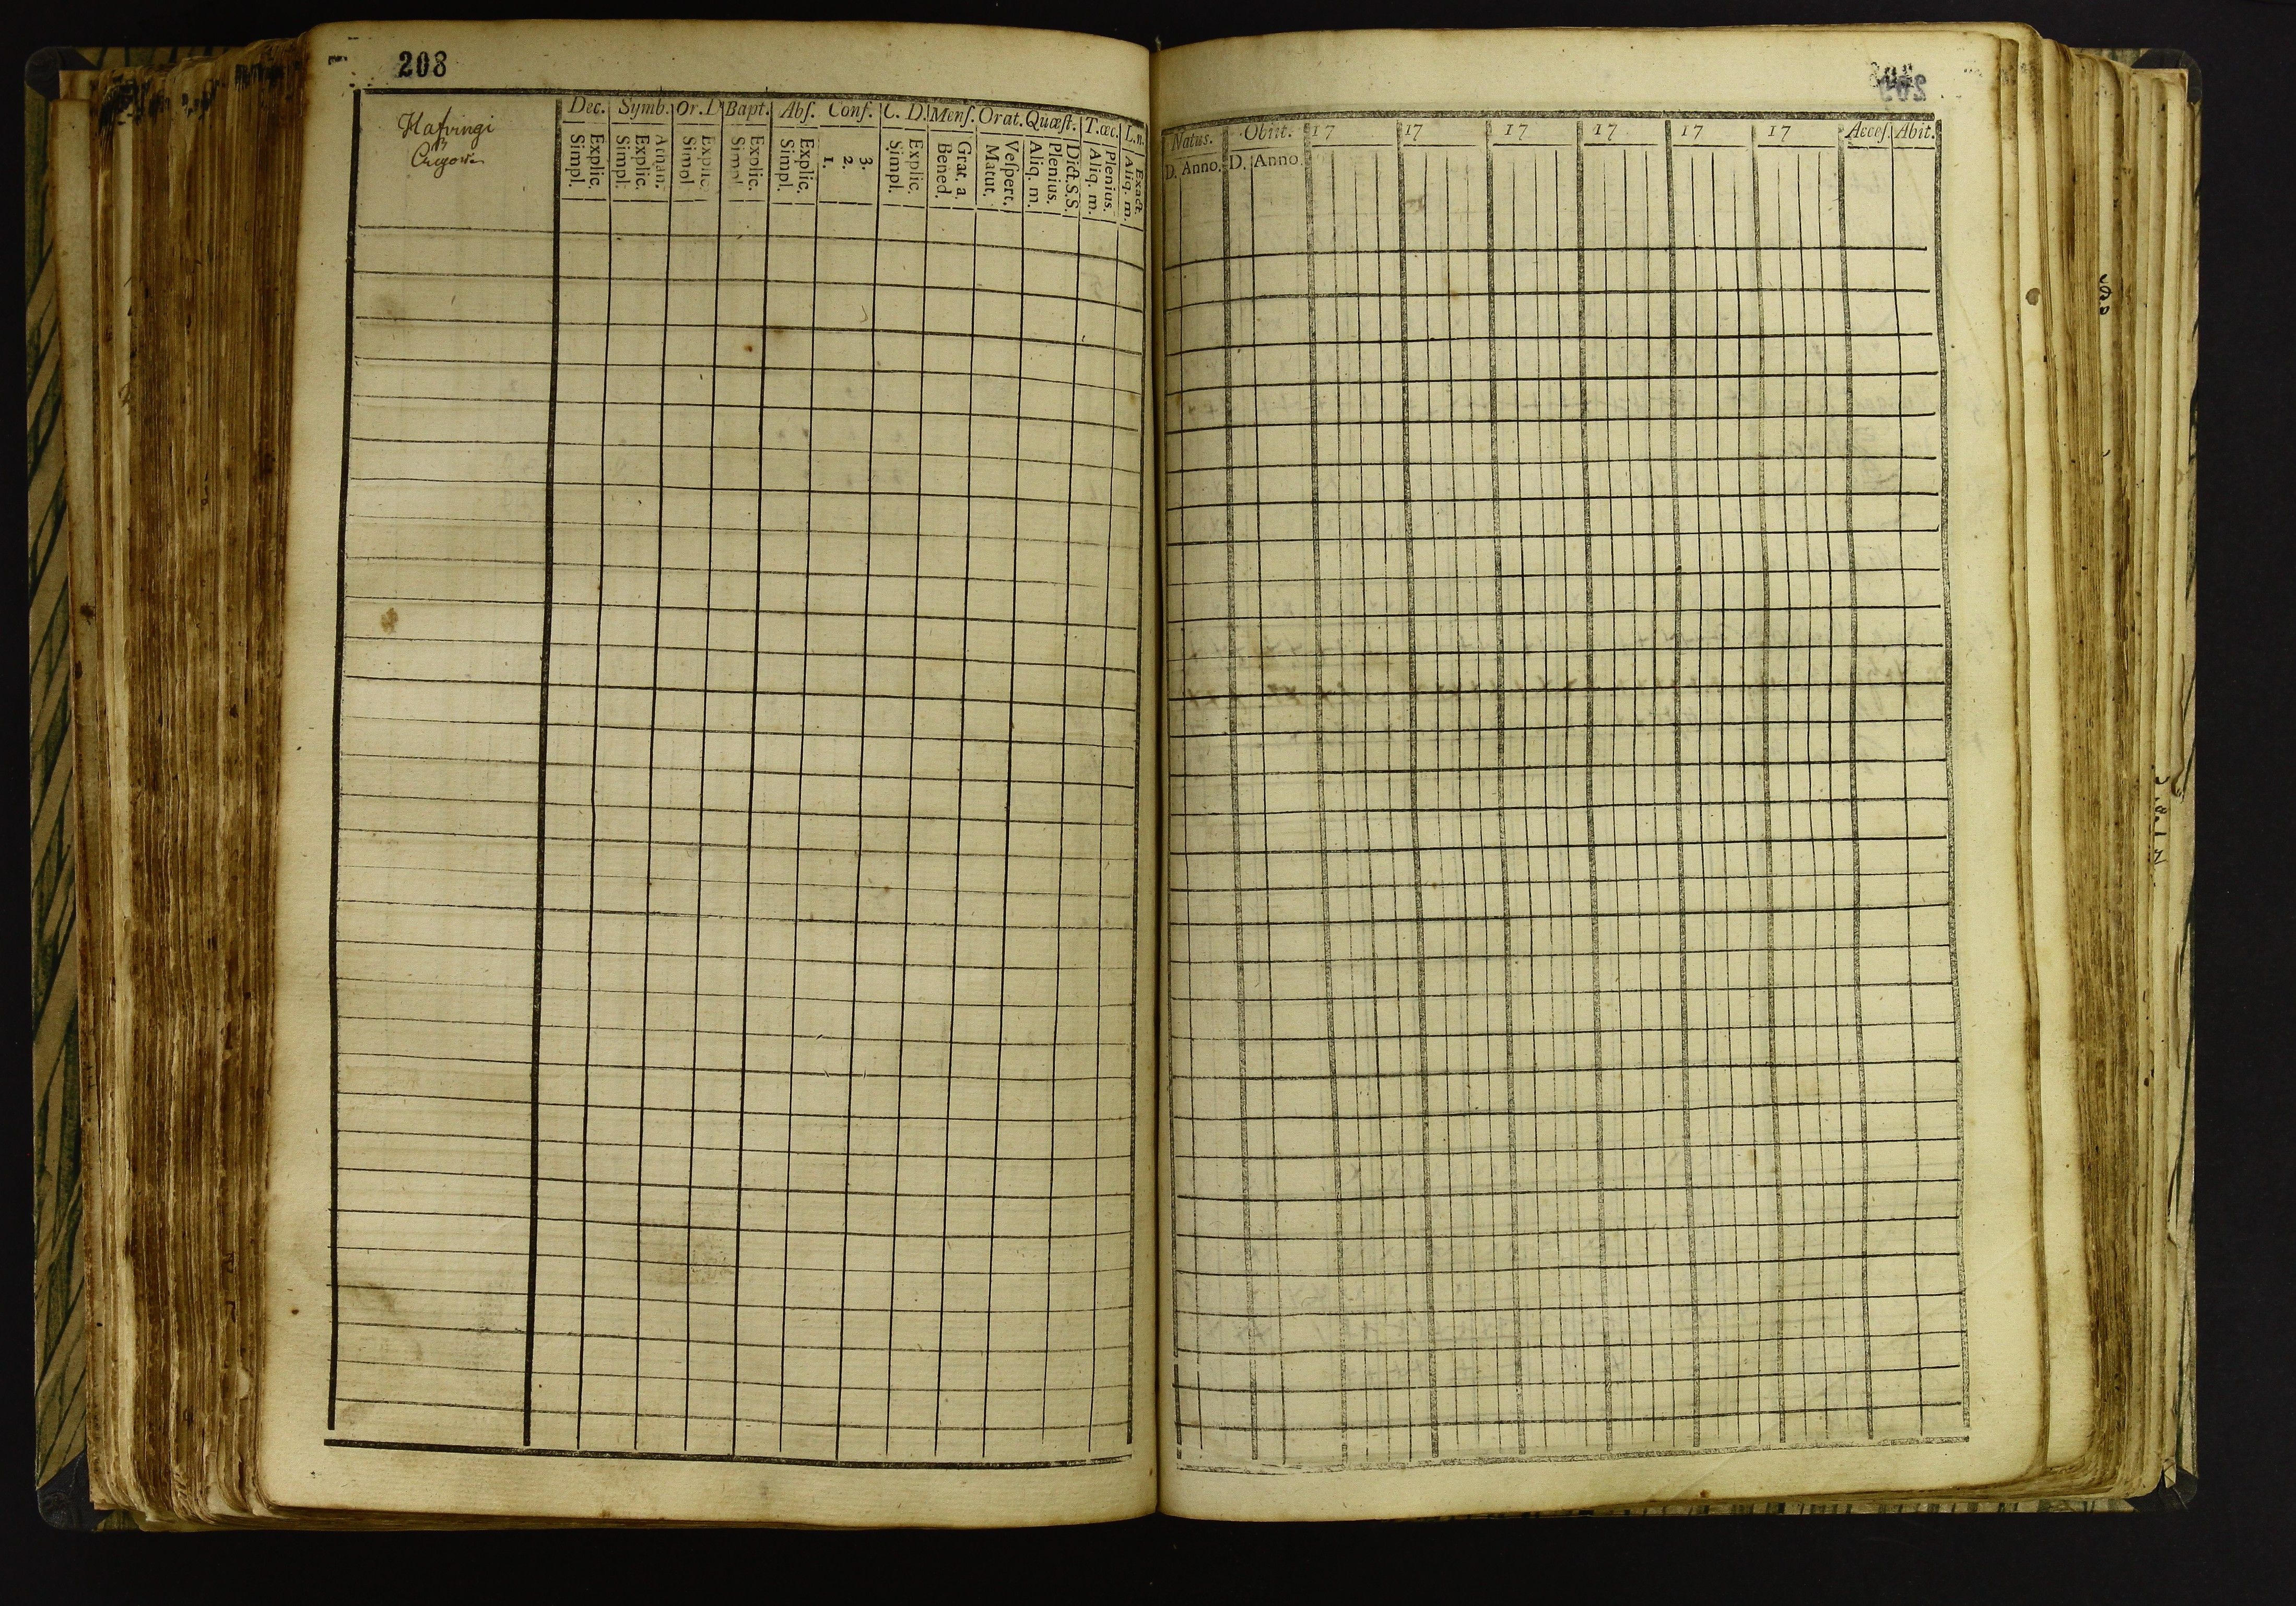 208
Hafvingi
Dec. Symb. Or. D Bapt. Abſ. Conf. C. D. Menſ. Orat. Quæſt. T. œc. L.n.
Explic. Simpl. Athan. Explic. Simpl. Explic. Simpl. Explic. Simpl. Explic. Simpl. 3. 2. 1. Explic. Simpl. Grat. a. Bened. Veſpert. Matut. Dict. S. S. Plenius. Aliq. m. Plenius. Aliq. m. Exact. Aliq. m.
Natus. Obiit. 17 17 17 17 17 17 Acceſ. Abit.
D. Anno. D. Anno.